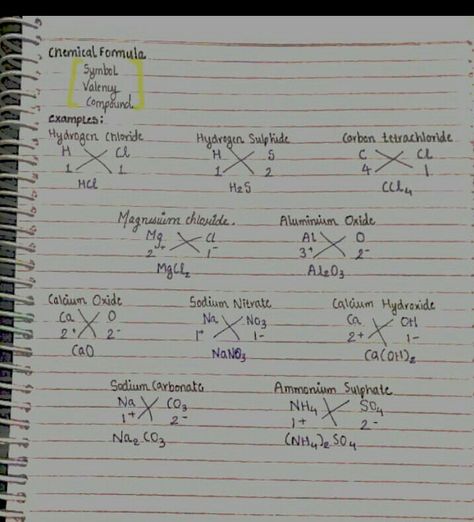 Chemical Formula
Symbol
Valency
Compound
Examples:
Hydrogen Chloride Hydrogen Sulphide Carbon tetrachloride
H Cl H S C Cl
1 1 1 2 4 1
HCl H₂S CCl₄
Magnesium chloride. Aluminium Oxide
Mg Cl Al O
2+ 1- 3+ 2-
MgCl₂ Al₂O₃
Calcium Oxide Sodium Nitrate Calcium Hydroxide
Ca O Na NO₃ Ca OH
2+ 2- 1+ 1- 2+ 1-
CaO NaNO₃ Ca(OH)₂
Sodium Carbonate Ammonium Sulphate
Na CO₃ NH₄ SO₄
1+ 2- 1+ 2-
Na₂CO₃ (NH₄)₂SO₄